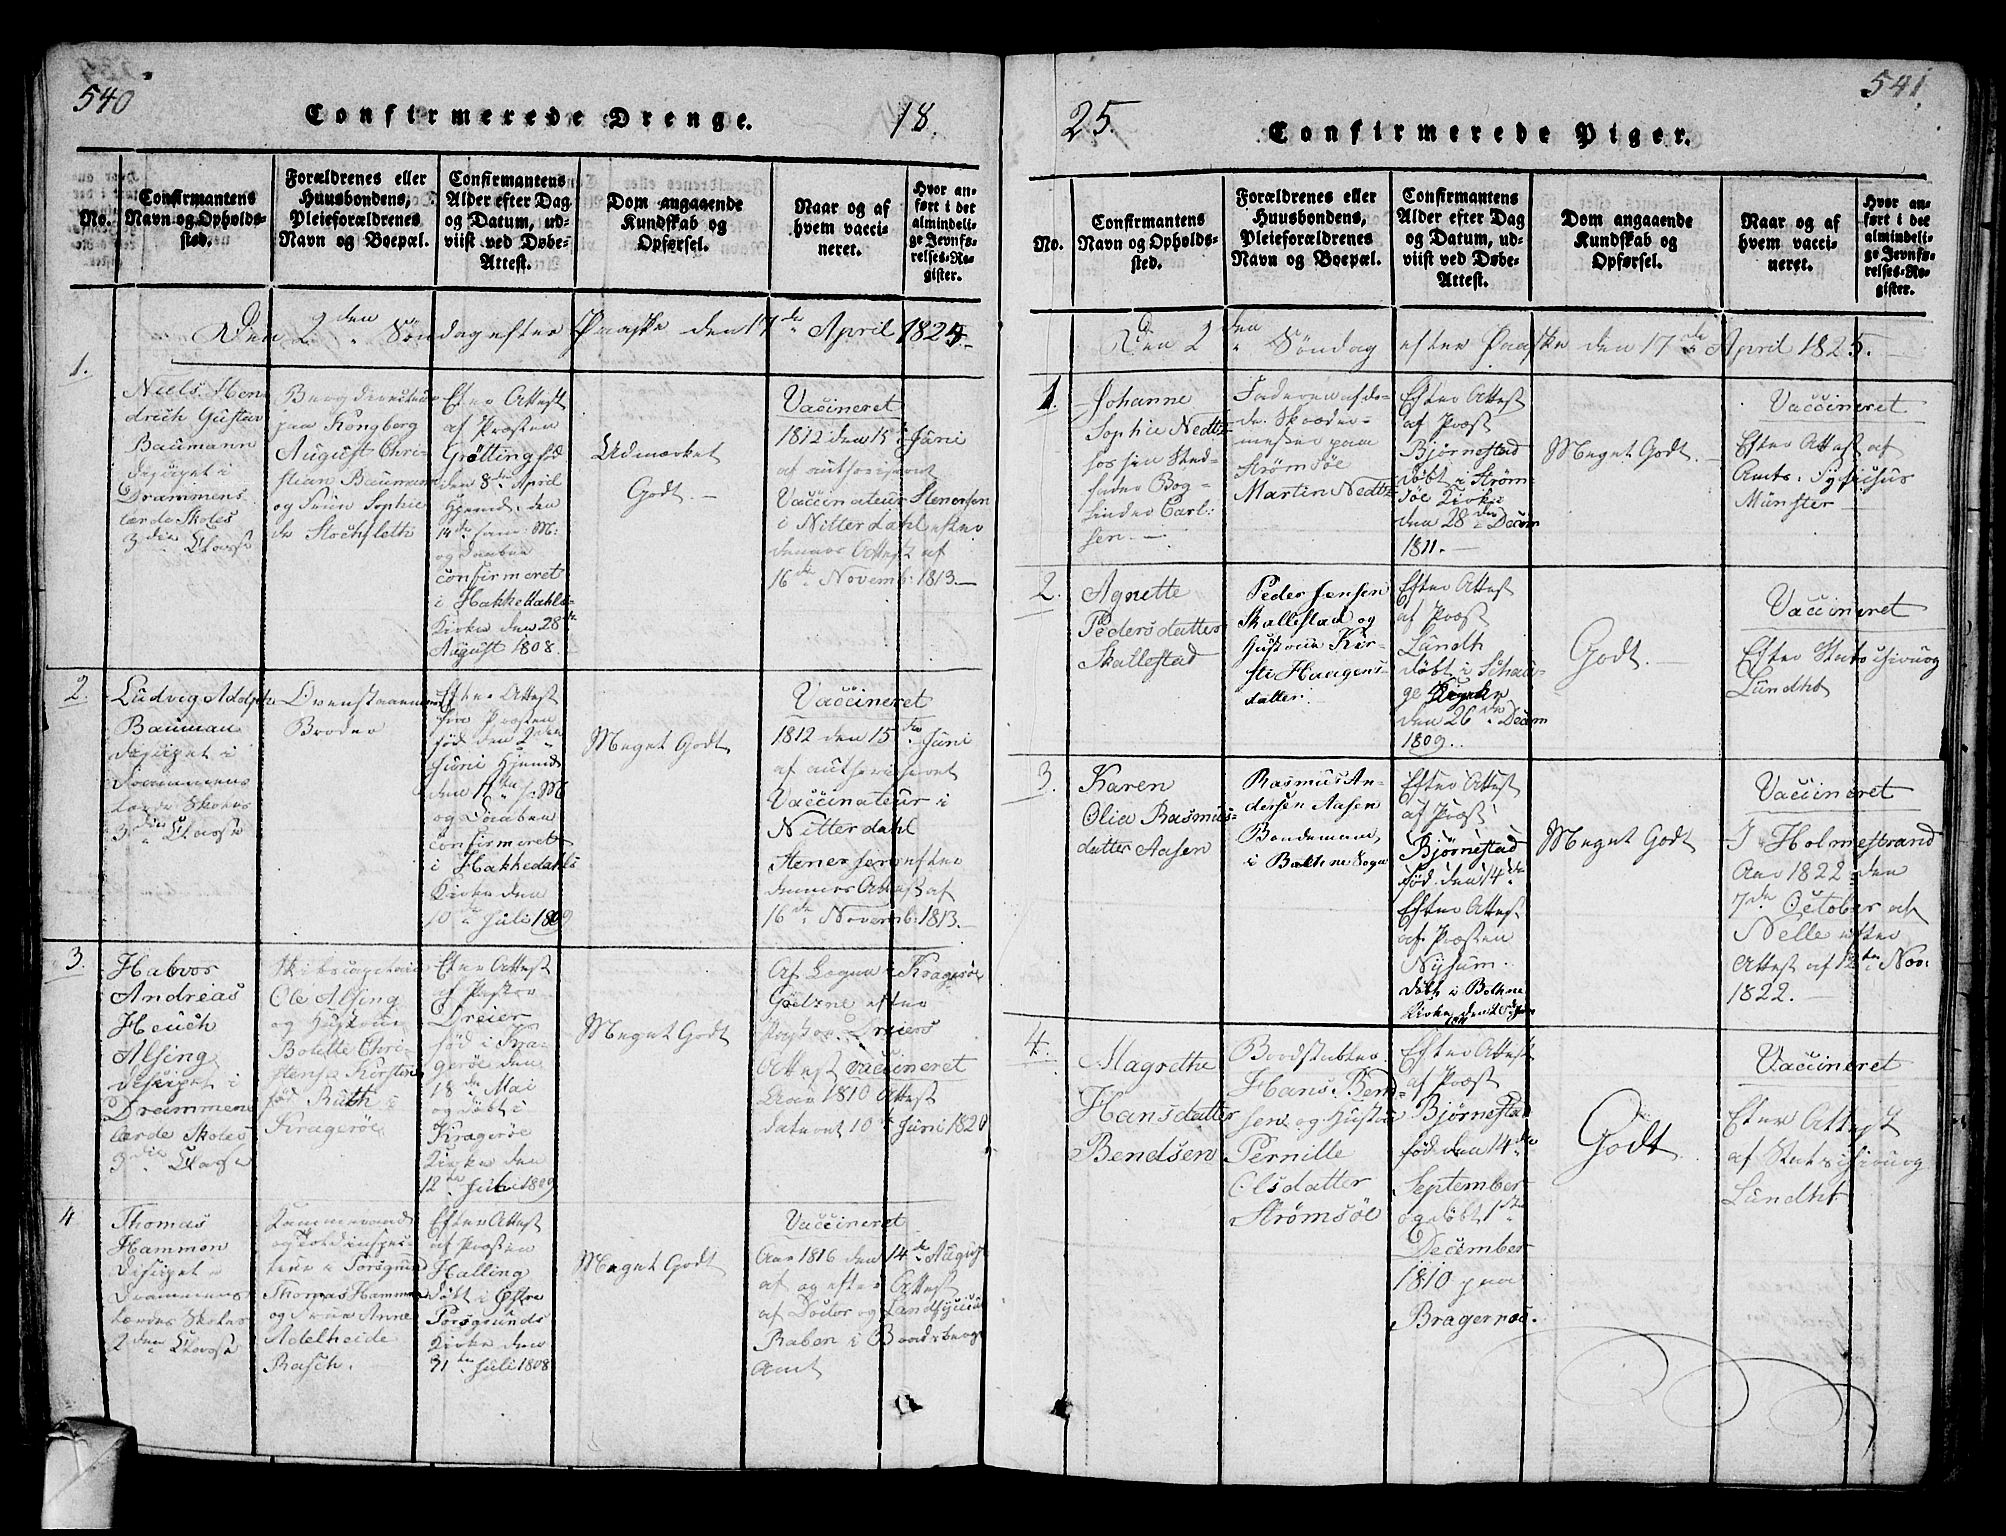 540
Confirmerede Drenge.
18.
No.
Confirmantens
Navn og Opholds-
sted.
Forældrenes eller
Huusbondens,
Pleieforældrenes
Navn og Boepæl.
Confirmantens
Alder efter Dag
og Datum, ud-
viist ved Døbe-
Attest.
Dom angaaende
Kundskab og
Opførsel.
Naar og af
hvem vacci-
neret.
Hvor an-
ført i det
almindeli-
ge Jevnfø-
relses-Re-
gister.
Den 2den Søndag efter Paaske den 17de April 1825.
1.
Niels Hen
drich Gustav
Baumann
Discipel i
Drammens
lærde Skoles
3die Classe
Bergdirecteur
paa Kongberg
August Chri-
stian Baumann
og Frue Sophie
de Stochfleth
Efter Attest
af Præsten
Grøtting fød
den 8de April
hjemd. den
14de samme M:
og Daaben
confirmeret
i Hakkedahls
Kirke den 28de
August 1808.
Udmærket
Godt.
Vaccineret
1812 den 15 Juni
af authoriseret
Vaccinateur Stenersen
i Nitterdahl efter
dennes Attest af
16de Novemb: 1813.
2.
Ludvig Adolph
Bauman
Discipel i
Drammens
lærde Skoles
3die Classe
Ovenstaaendes
Broder
Efter Attest
fra Præsten
fød den 2den
Juni hjemd
den 11te s. M
og Daaben
confirmeret
i Hakkedahls
Kirke den
10de Juli 1809
Meget Godt
Vaccineret
1812 den 15 Juni
af authoriseret
Vaccinateur i
Nitterdahl
Stenersen efter
dennes Attest af
16de Novemb: 1813.
3.
Halvor
Andreas
Heuch
Alsing
Discipel i
Drammens
lærde Skoles
3die Classe
Skibscapitain
Ole Alsing
og Hustrue
Bolette Chri-
stense Kirstine
fød Ruth i
Kragerøe
Efter Attest
af Pastor
Dreier
fød i Kra-
gerøe den
18de Mai
og døbt i
Kragerøe
Kirke den
12te Juli 1809
Meget Godt
Af Læge i Kragerøe
efter
Pastor Dreiers
Attest vaccineret
Aar 1810 Attest
dateret 10de Juni 1820
4
Thomas
Hammon
Discipel i
Drammens
lærdes Skoles
2den Classe
Kammerraad
og Toldinspec-
teur i Porsgrund
Thomas Hammon
og Frue Anne
Adelheide
Rasch.
Efter Attest
af Præsten
Halling
døbt i Østre
Porsgrunds
Kirke den
31te Juli 1808
Meget Godt
Vaccineret
Aar 1816 den 14de August
af og efter Attest
af Doctor og Landphysicus
Raben i Bradsbergs
Amt
25.
541.
Confirmerede Piger.
No.
Confirmantens
Navn og Opholds-
sted.
Forældrenes eller
Huusbondens,
Pleieforældrenes
Navn og Boepæl.
Confirmantens
Alder efter Dag
og Datum, ud-
viist ved Døbe-
Attest.
Dom angaaende
Kundskab og
Opførsel.
Naar og af
hvem vacci-
neret.
Hvor an-
ført i det
almindeli-
ge Jevnfø-
relses-Re-
gister.
Den 2den Søndag efter Paaske den 17de April 1825.
1.
Johanne
Sophie Nedtz
hos sin Sted-
fader Bog-
binder Carl-
sen.
Faderen afdø-
de Skræder-
mester paa
Strømsøe
Martin Nedtz
Efter Attest
af Præst
Bjørnestad
døbt i Strøm-
søe Kirke
den 28de Decem
1811.
Meget Godt.
Vaccineret
Efter Attest af
Amts. Physicus
Münster
2.
Agnette
Pedersdatter
Skallestad
Peder Jensen
Skallestad og
Hustrue Kir-
sti Haagens
datter.
Efter Attest
af Præst
Lündth
døbt i Schau-
ge Kirke
den 26de Decem
1809.
Godt.
Vaccineret
Efter Statschirurg
Lündht
3.
Karen
Olia Rasmus-
datter Aasen
Rasmus An-
dersen Aasen
Bondemand
i Bothne Sogn
Efter Attest
af Præst
Bjørnestad
fød den 14de
Efter Attest
af Præsten
døbt i Bothne
Kirke
Meget Godt
Vaccineret
I Holmestrand
Aar 1822 den
7de October af
Nelle efter
Attest af 12te Nov:
1822.
4.
Magrethe
Hansdatter
Bendsen
Hans Bend-
sen og Hustrue
Pernille
Olsdatter
Strømsøe
Efter Attest
af Præst
Bjørnestad
fød den 14de
September
og døbt 1ste
December
1810 paa
Bragernæs.
Godt
Vaccineret
Efter Attest
af Statschirurg
Lündht